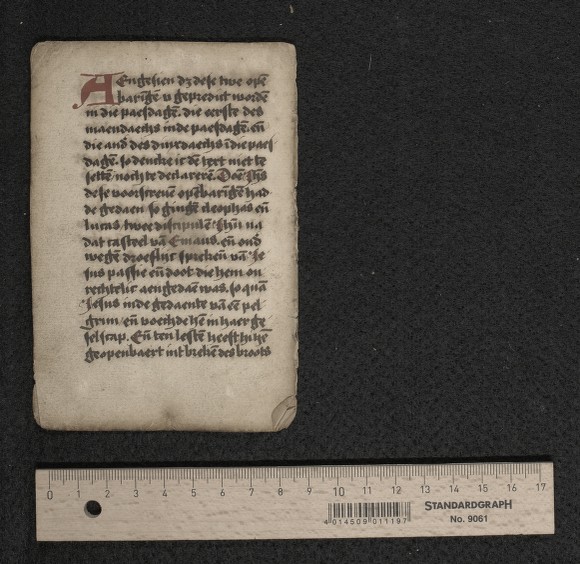 AEngesien dz dese twe opē
barīgē v gepredict wordē
in die paesdagē. die eerste des
maendaechs inde paesdagē. eñ
die and̄ des dinxdaechs ī die paes
dagē. so dencke ic dē text niet te
sellē noch te declarerē. Doē ihs
dese voorscreuē opēbarīgē had
de gedaen so gingē cleophas eñ
lucas twee discipulē ihū na
dat casteel vā Emaus. eñ ond̄
wegē droeflic sprekēn vā ihe
sus passie eñ doot die hem on
rechtelic aengedaē was. so quā
ihesus inde gedaente vā eē pel
grim eñ voechde hē in haer ge
selscap. Eñ ten lestē heeft hi hē
geopenbaert int brekē des broots
0 1 2 3 4 5 6 7 8 9 10 11 12 13 14 15 16 17
4 014509 011197
STANDARDGRAPH
No. 9061